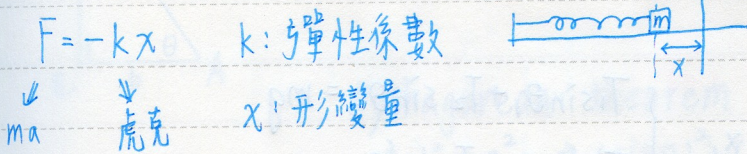 F = -kx k: 彈性係數 m
x
ma 虎克 x: 形變量